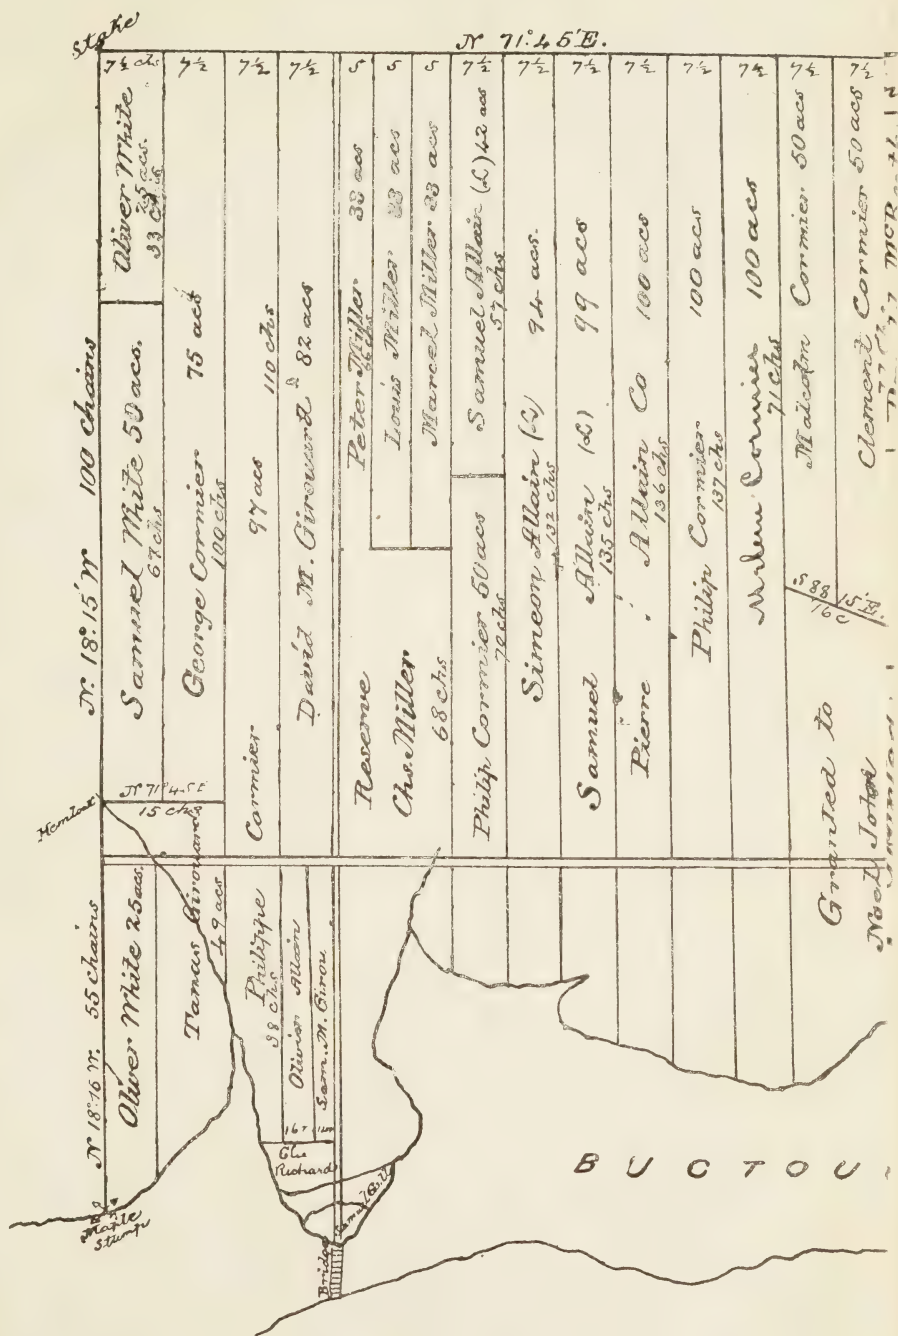 Stake
N 71°45'E.
7½ chs
7½
7½
7½
5
5
5
7½
7½
7½
7½
7½
7½
7½
7½
N. 18°.15' W 100 chains
Oliver White
25 acs.
33 chs
Samuel White 50 acs.
67 chs
George Cormier 75 acs
100 chs
Cormier 97 acs 110 chs
David M. Girouard 82 acs
Reserve
Peter Miller 33 acs
Louis Miller 33 acs
Marcel Miller 33 acs
Chs. Miller
68 chs
Samuel Allain (L) 42 acs
57 chs
Philip Cormier 50 acs
72 chs
Simeon Allain (L) 94 acs.
132 chs
Samuel Allain (L) 99 acs
135 chs
Pierre Allain Co 100 acs
136 chs
Philip Cormier 100 acs
137 chs
Cormier 100 acs
71 chs
Malcolm Cormier 50 acs
Clement Cormier 50 acs
S 88 15'E.
16 c
Granted to
Noel John
N 71°45 E
15 chs
Hemlock
N 18°.16 W. 55 chains
Oliver White 25 acs.
Tanas Girouard
49 acs
Philippe
38 chs
Olivier Allain
Sam. M. Girou
Richard
Maple
Stump
Bridge
BUCTOU